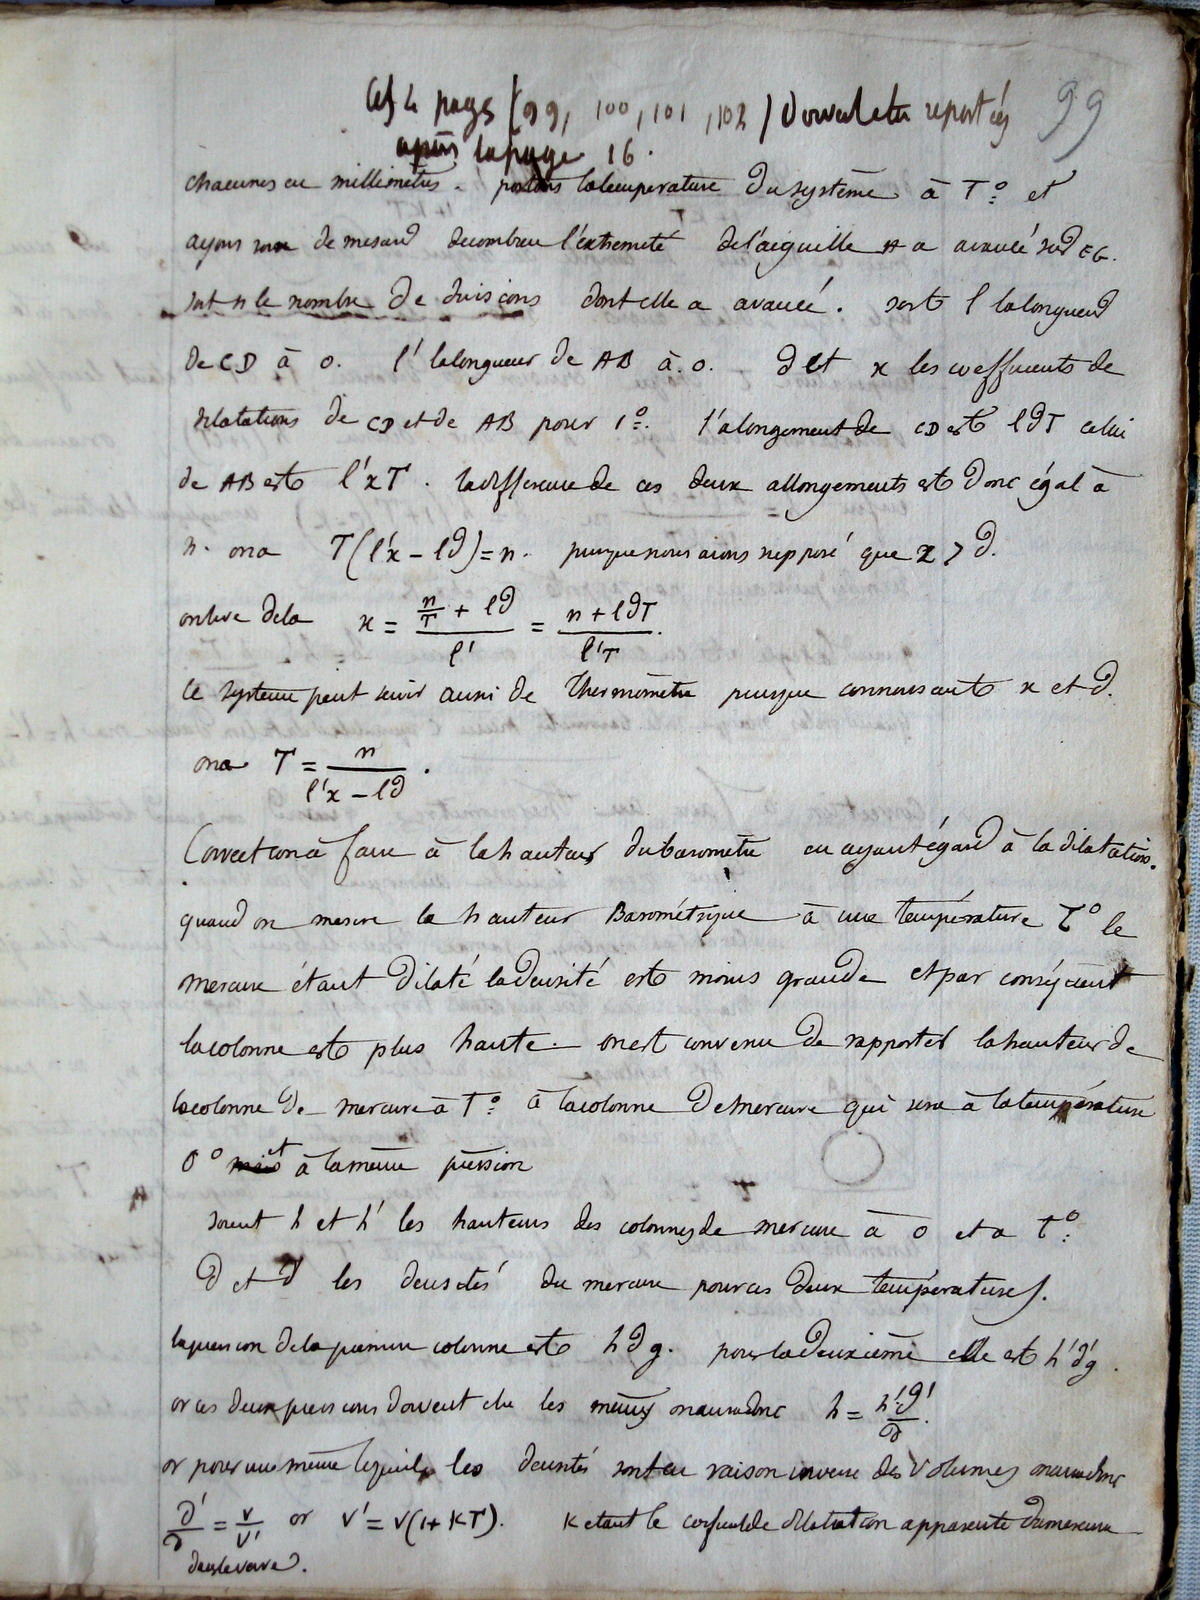 Ces 4 pages (99, 100, 101, 102) doivent etre reportées 99
après la page 16.
chacunes en millimètres. portons la temperature du système à T° et
ayons soin de mesurer decombien l'extremeté de l'aiguille A a avancé sur EG.
soit n le nombre de divisions dont elle a avancé. soit l la longueur
de CD à 0. l' la longueur de AB à 0. d et x les coefficients de
dilatations de CD et de AB pour 1°. l'alongement de CD est ldT celui
de AB est l'xT. la difference de ces deux allongements est donc égal à
n. on a T(l'x – ld) = n. puisque nous avons supposé que x > d.
on tire dela x = (n/T + ld)/l' = (n + ldT)/l'T.
Ce systeme peut servir aussi de Thermomètre puisque connoissant x et d.
on a T = n/(l'x – ld).
Correction à faire à la hauteur du barometre en ayant égard à la dilatation.
quand on mesure la hauteur Barométrique à une température T° le
mercure étant dilaté la densité est moins grande et par conséquent
la colonne est plus haute. on est convenu de rapporter la hauteur de
la colonne de mercure à T° à la colonne de mercure qui sera à la température
0° et à la même pression
soient h et h' les hauteurs des colonnes de mercure à 0 et a T°.
d et d' les densités du mercure pour ces deux températures.
la pression de la premiere colonne est hdg. pour la deuxième elle est h'd'g.
or ces deux pressions doivent etre les mêmes on aura donc h = h'd'/d.
or pour une même liquide les densités sont en raison inverse des volumes on aura donc
d'/d = v/v' or v' = v(1+KT). K etant le coefficient de dilatation apparente du mercure
dans le verre.